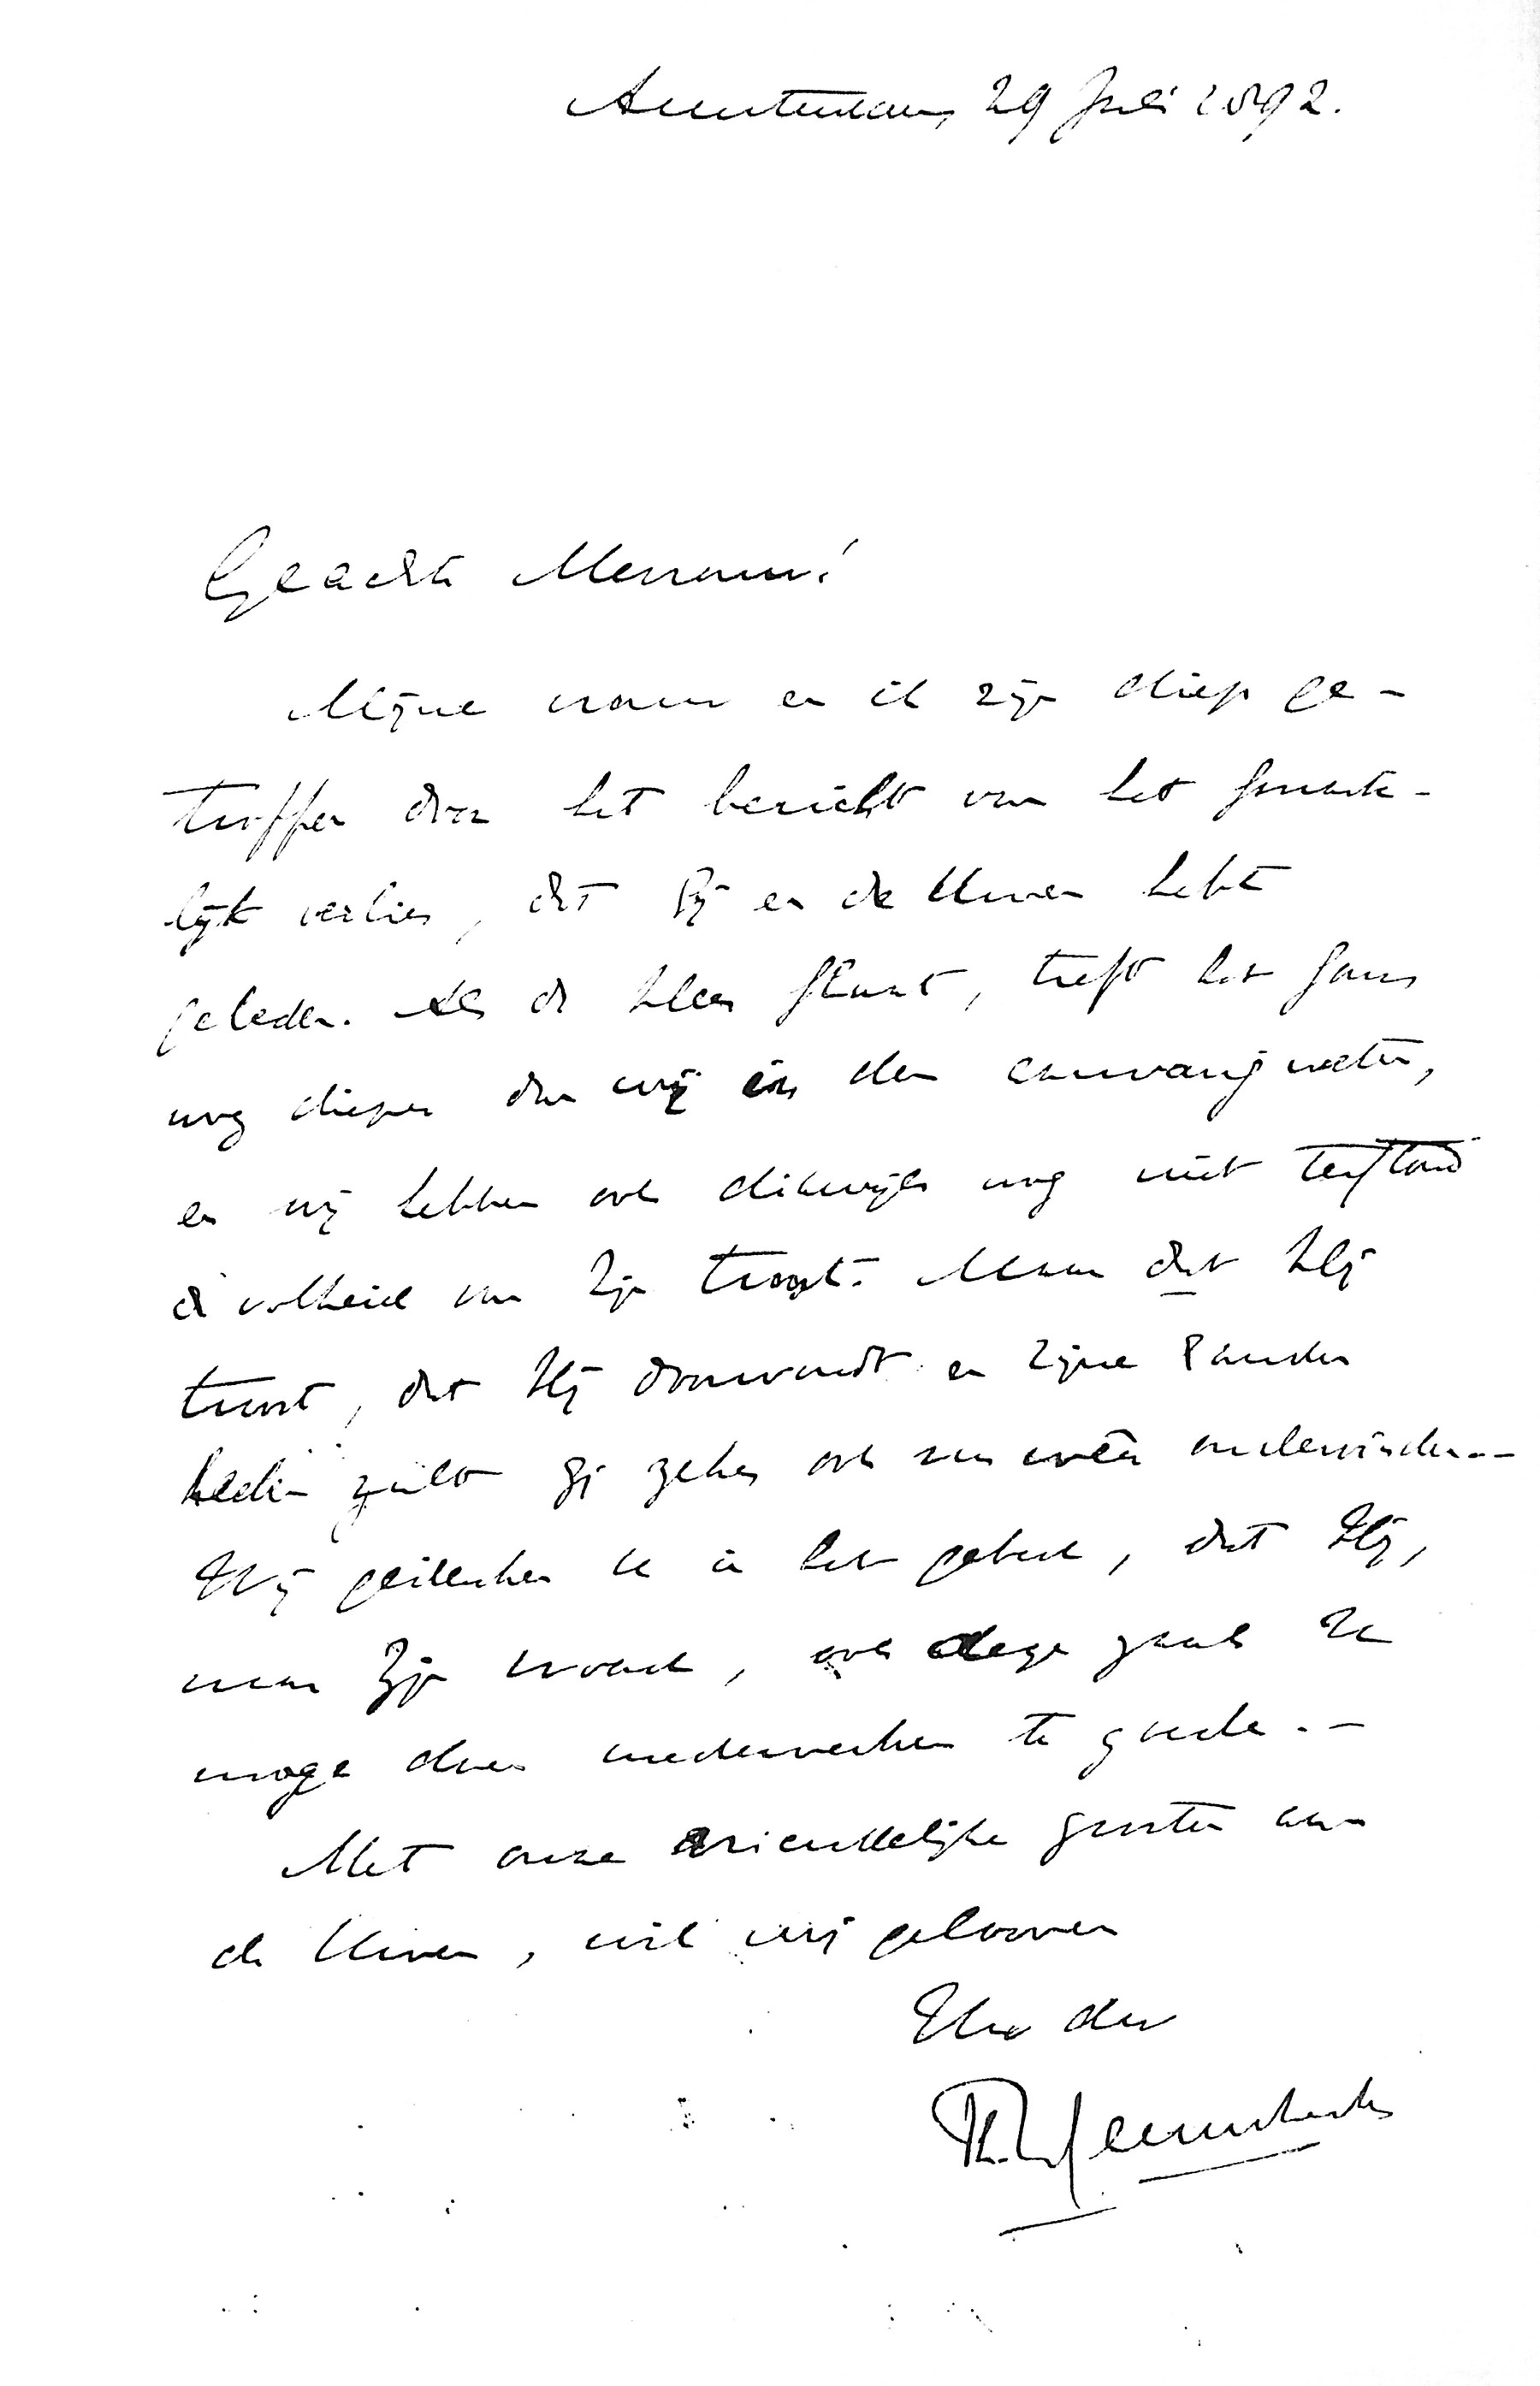 Amsterdam, 29 Juli 1892.
Geachte Mevrouw!
Mijne vrouw en ik zijn diep ge-
troffen door het bericht van het smarte-
lijk verlies, dat Gij en de Uwen hebt
geleden. Als de Heer slaat, treft het soms
nog dieper dan wij in den aanvang weten,
en wij hebben ook dikwijls nog niet terstond
de volheid van Zijn troost. Maar dat Hij
troost, dat Hij doorwondt en Zijne handen
heelen zult gij zeker ook nu weêr ondervinden.-
Wij gedenken U in het gebed, dat Hij,
naar Zijn woord, ook deze zaak U
moge doen medewerken te goede.-
Met onze vriendelijke groeten aan
de Uwen, wil mij gelooven
Uw dw